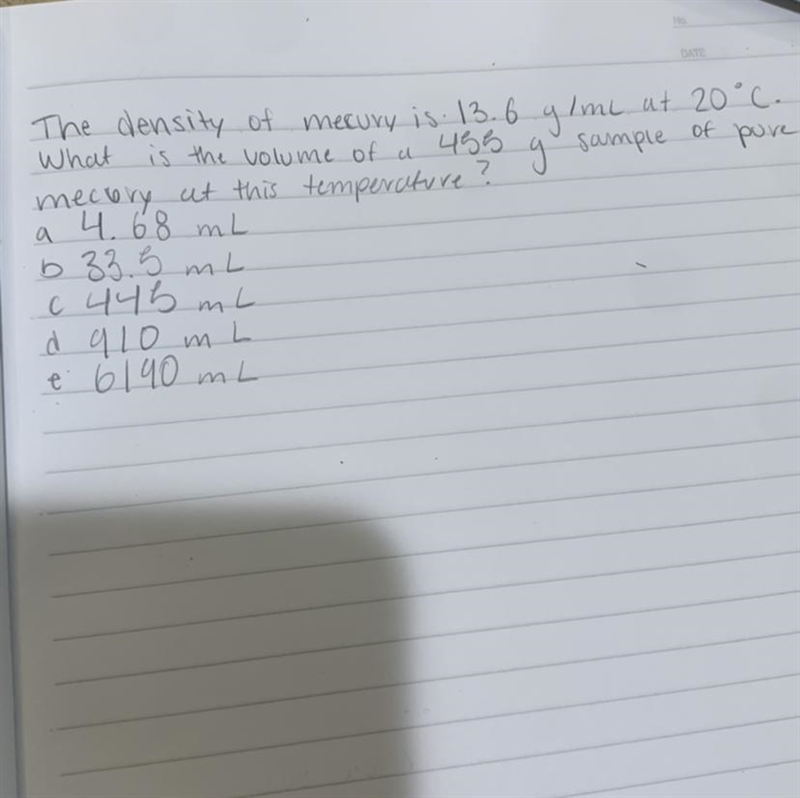 No.
DATE
The density of mecury is 13.6 g/mL at 20°C.
What is the volume of a 455 g sample of pure
mecury at this temperature?
a 4.68 mL
b 33.5 mL
c 445 mL
d 910 mL
e 6190 mL